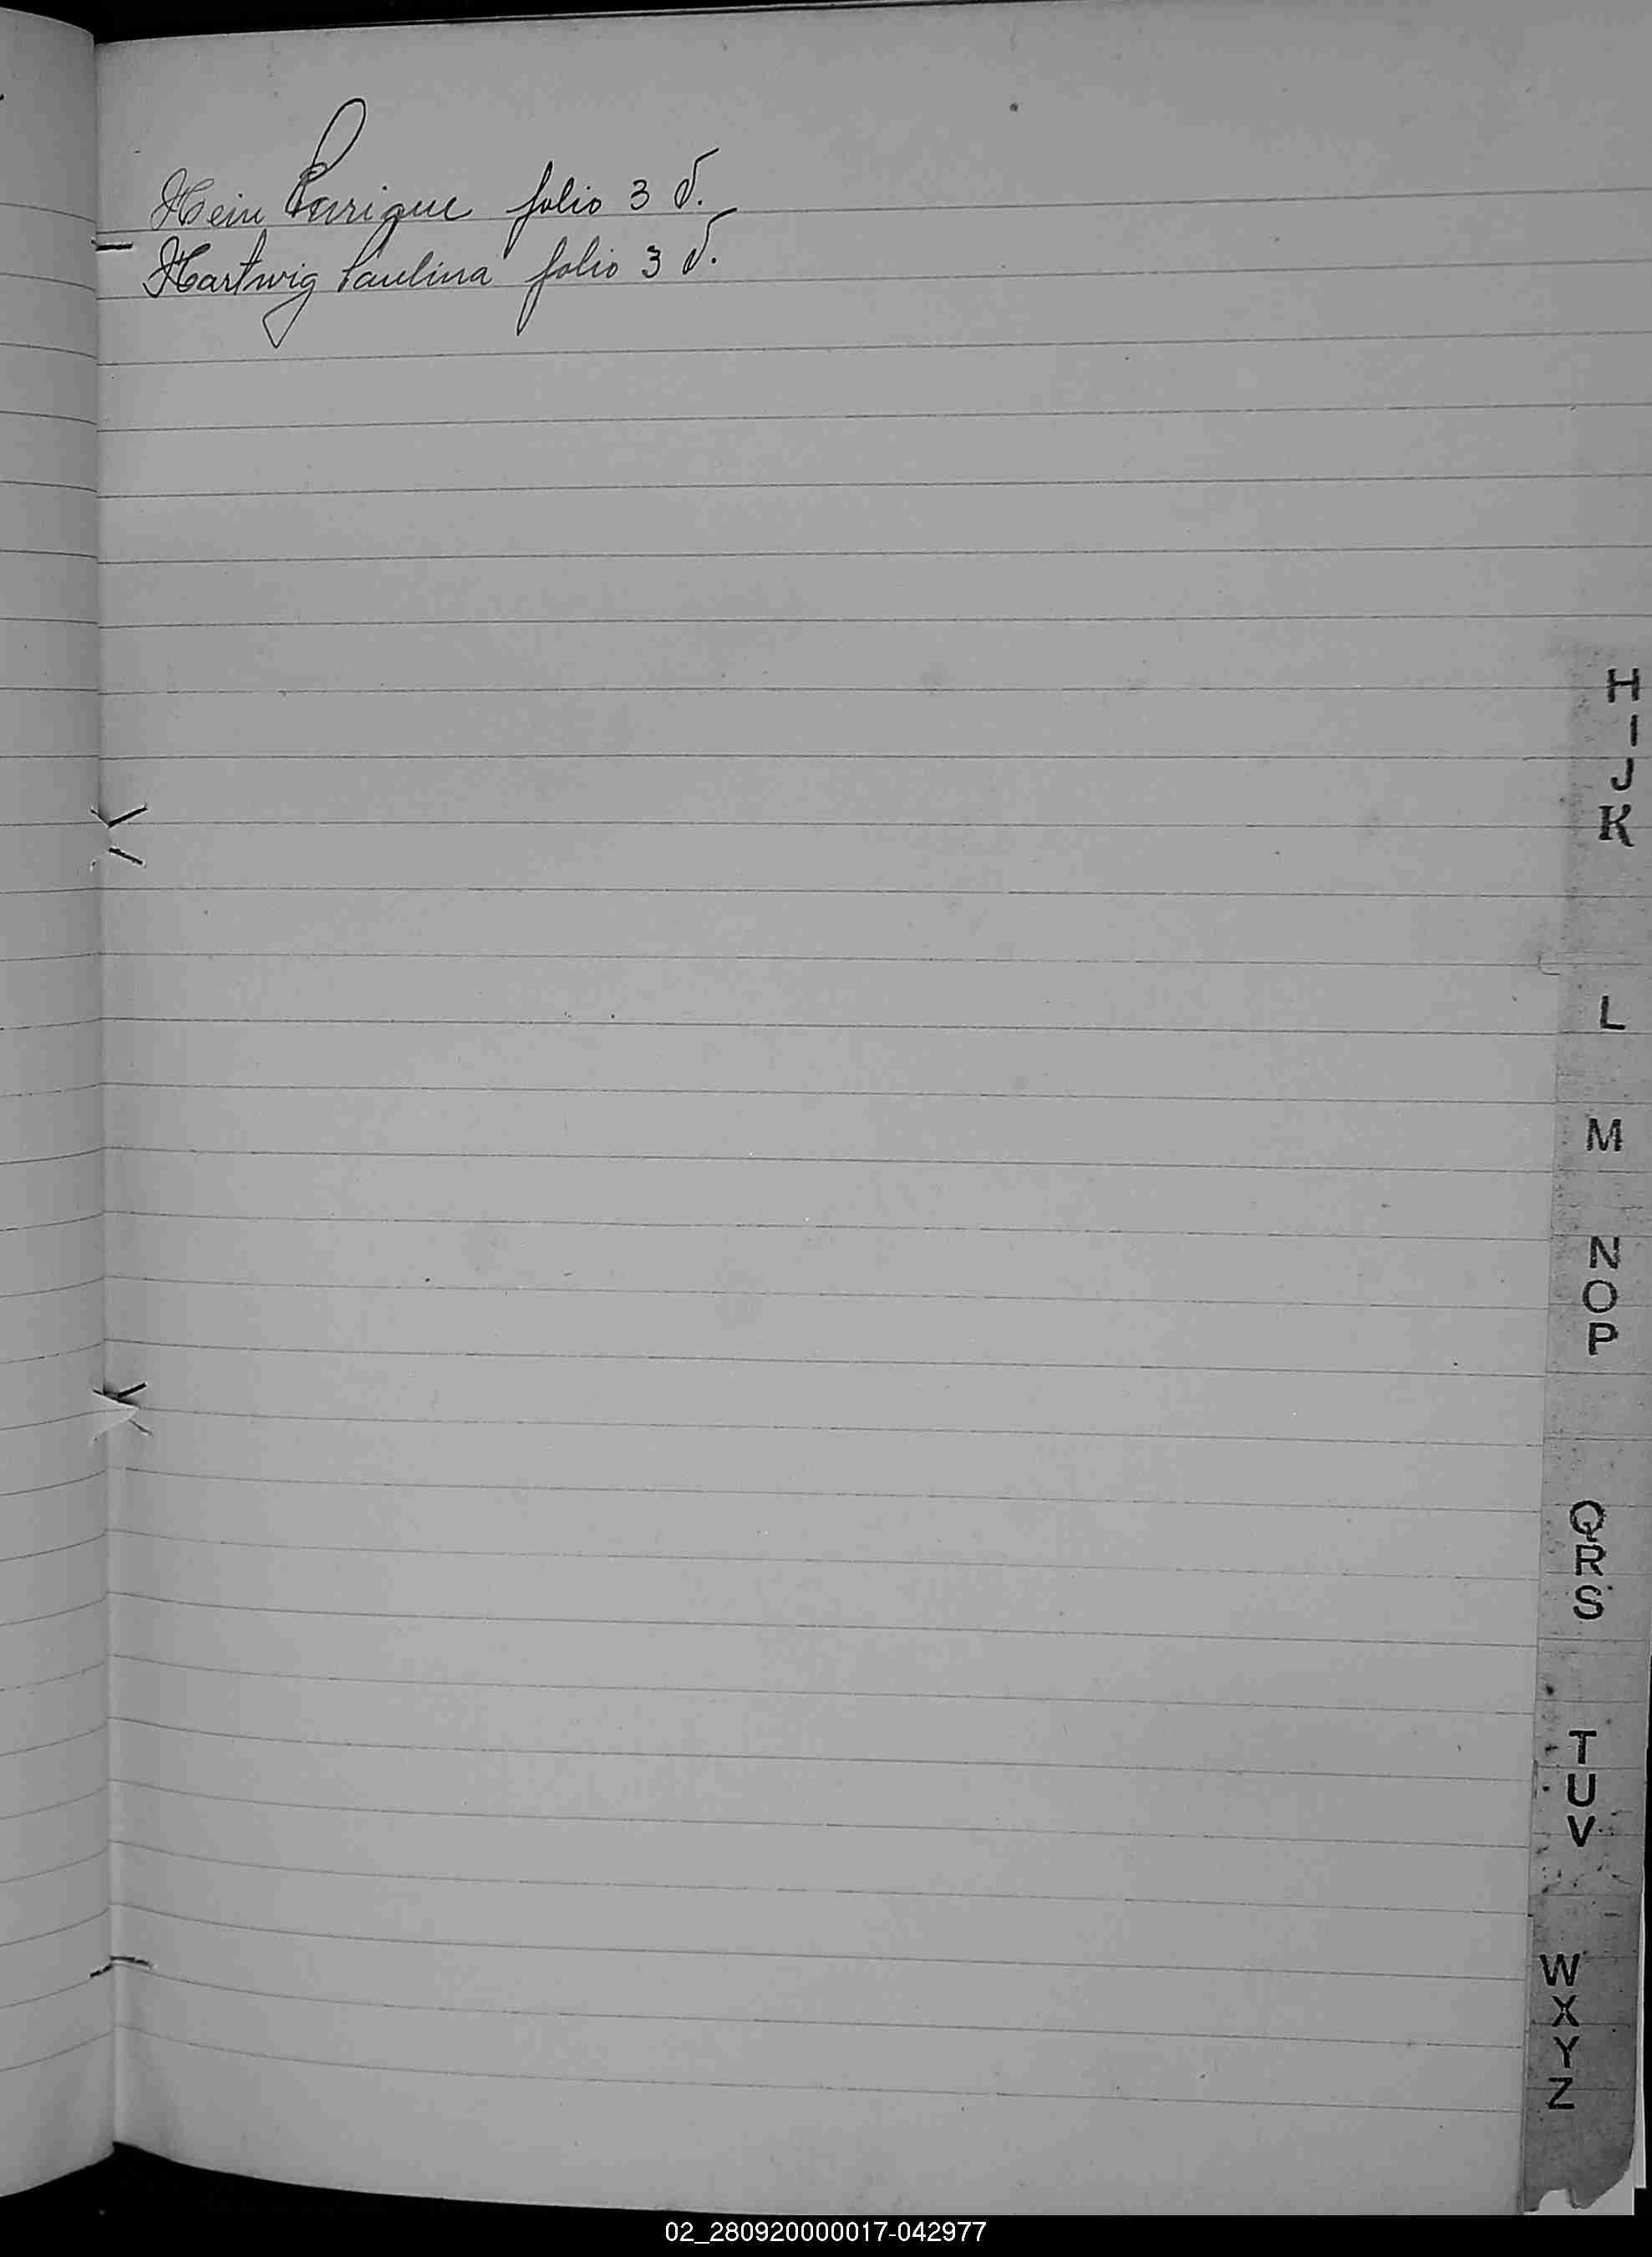 Hein Enrique folio 3 v.
Hartwig Paulina folio 3 v.
H
I
J
K
L
M
N
O
P
Q
R
S
T
U
V
W
X
Y
Z
02_280920000017-042977